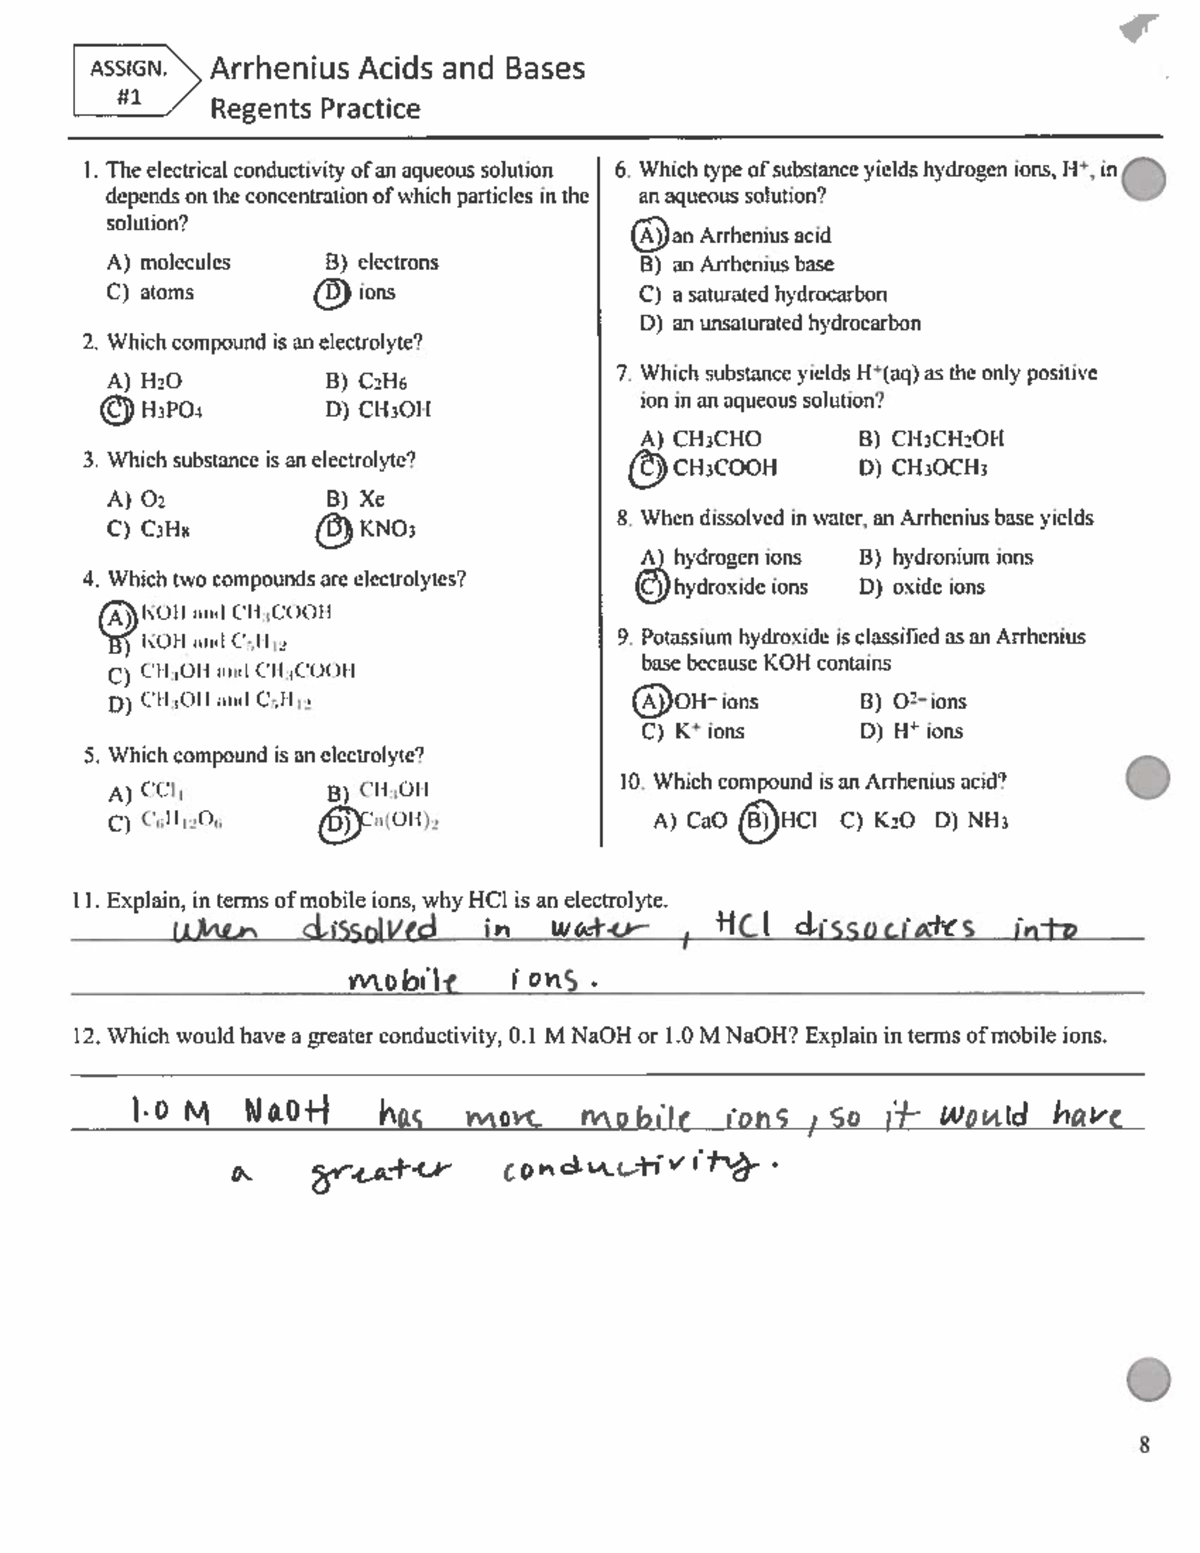 ASSIGN.
#1
Arrhenius Acids and Bases
Regents Practice
1. The electrical conductivity of an aqueous solution
depends on the concentration of which particles in the
solution?
A) molecules B) electrons
C) atoms D) ions
2. Which compound is an electrolyte?
A) H2O B) C2H6
C) H3PO4 D) CH3OH
3. Which substance is an electrolyte?
A) O2 B) Xe
C) C3H8 D) KNO3
4. Which two compounds are electrolytes?
A) KOH and CH3COOH
B) KOH and C5H12
C) CH3OH and CH3COOH
D) CH3OH and C5H12
5. Which compound is an electrolyte?
A) CCl4 B) CH3OH
C) C6H12O6 D) Ca(OH)2
6. Which type of substance yields hydrogen ions, H+, in
an aqueous solution?
A) an Arrhenius acid
B) an Arrhenius base
C) a saturated hydrocarbon
D) an unsaturated hydrocarbon
7. Which substance yields H+(aq) as the only positive
ion in an aqueous solution?
A) CH3CHO B) CH3CH2OH
C) CH3COOH D) CH3OCH3
8. When dissolved in water, an Arrhenius base yields
A) hydrogen ions B) hydronium ions
C) hydroxide ions D) oxide ions
9. Potassium hydroxide is classified as an Arrhenius
base because KOH contains
A) OH− ions B) O2− ions
C) K+ ions D) H+ ions
10. Which compound is an Arrhenius acid?
A) CaO B) HCl C) K2O D) NH3
11. Explain, in terms of mobile ions, why HCl is an electrolyte.
when dissolved in water, HCl dissociates into
mobile ions.
12. Which would have a greater conductivity, 0.1 M NaOH or 1.0 M NaOH? Explain in terms of mobile ions.
1.0 M NaOH has more mobile ions, so it would have
a greater conductivity.
8